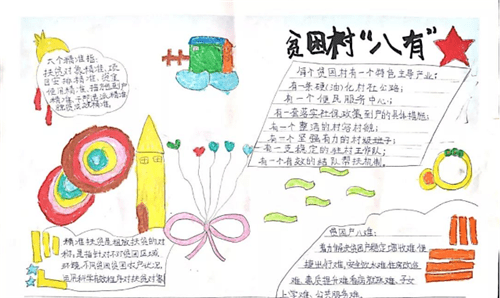 贫困村“八有”
六个精准指:
扶贫对象精准,项
目安排精准,资金
使用精准,措施到户
精准,
脱贫成效精准。
每个贫困村有一个特色主导产业;
有一条硬(油)化村社公路;
有一个便民服务中心;
有一套落实社保政策到户的具体措施;
有一个整洁的村容村貌;
有一个坚强有力的村级班子;
有一支稳定的驻村工作队;
有一个有效的结队帮扶机制。
精准扶贫是粗放扶贫的对
称,是指针对不同贫困区域
环境、不同贫困农户状况,
运用科学有效程序对扶贫对象
贫困户八难:
着力解决贫困户稳定增收难,便
捷出行难,安全饮水难,住房改造
难,素质提升难,看病就医难,子女
上学难,公共服务难。